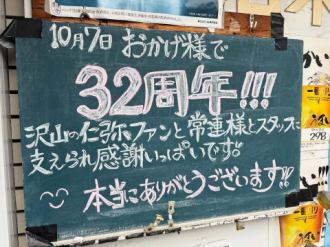 10月7日 おかげ様で
32周年!!!
沢山の仁弥ファンと常連様とスタッフに
支えられ感謝いっぱいです。
本当にありがとうございます!!
298